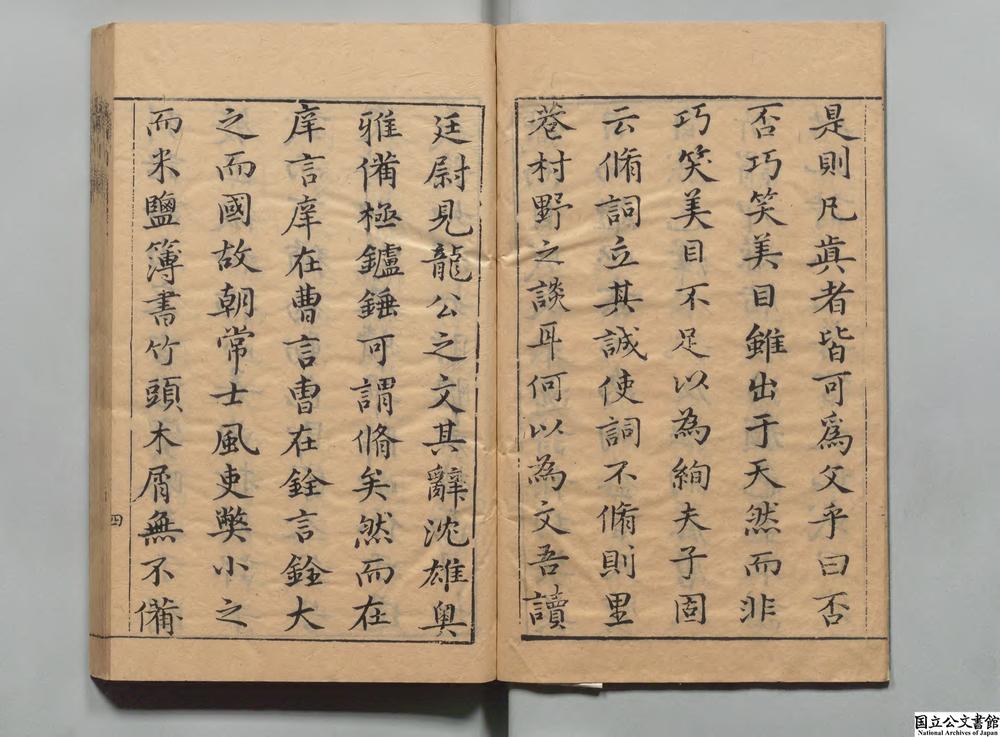 是則凡眞者皆可爲父乎曰否
否巧笑美目雖出于天然而非
巧笑美目不足以為絢夫子固
云脩詞立其誠使詞不脩則里
巷村野之談耳何以為文吾讀
廷尉見龍公之文其辭沈雄奥
雅備極鑪錘可謂脩矣然而在
庠言庠在曹言曹在銓言銓大
之而國故朝常士風吏弊小之
而米鹽簿書竹頭木屑無不備
四
国立公文書館
National Archives of Japan